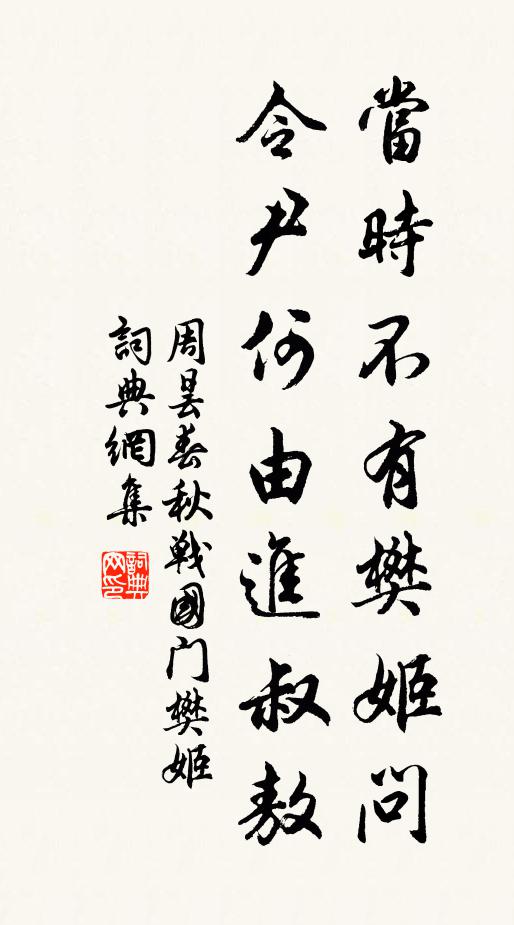 當時不有樊姬問
令尹何由進叔敖
周曇春秋戰國門樊姬
詞典網集
詞典
网印